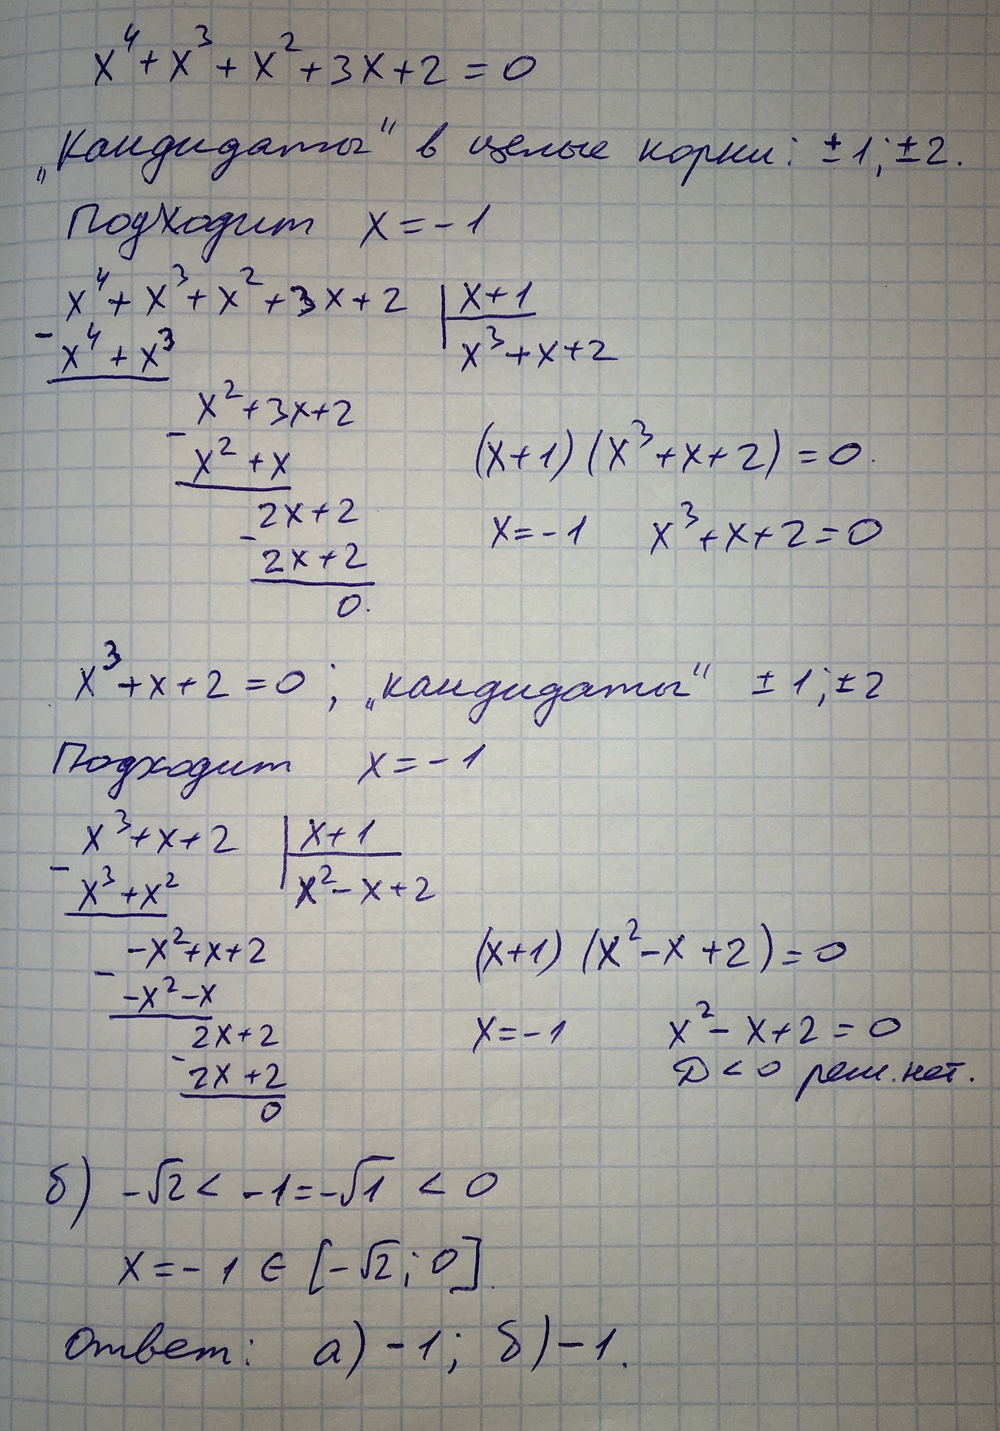 x⁴ + x³ + x² + 3x + 2 = 0
„Кандидаты“ в целые корни: ±1; ±2.
Подходит x = -1
x⁴ + x³ + x² + 3x + 2 | x+1
- x⁴ + x³ | x³ + x + 2
x² + 3x + 2
- x² + x
(x+1)(x³ + x + 2) = 0.
2x + 2
- 2x + 2
x = -1 x³ + x + 2 = 0
0.
x³ + x + 2 = 0 ; „кандидаты“ ±1; ±2
Подходит x = -1
x³ + x + 2 | x+1
- x³ + x² | x² - x + 2
-x² + x + 2
- -x² - x
(x+1)(x² - x + 2) = 0
2x + 2
- 2x + 2
0
x = -1 x² - x + 2 = 0
D < 0 реш. нет.
б) -√2 < -1 = -√1 < 0
x = -1 ∈ [-√2; 0].
Ответ: а) -1; б) -1.